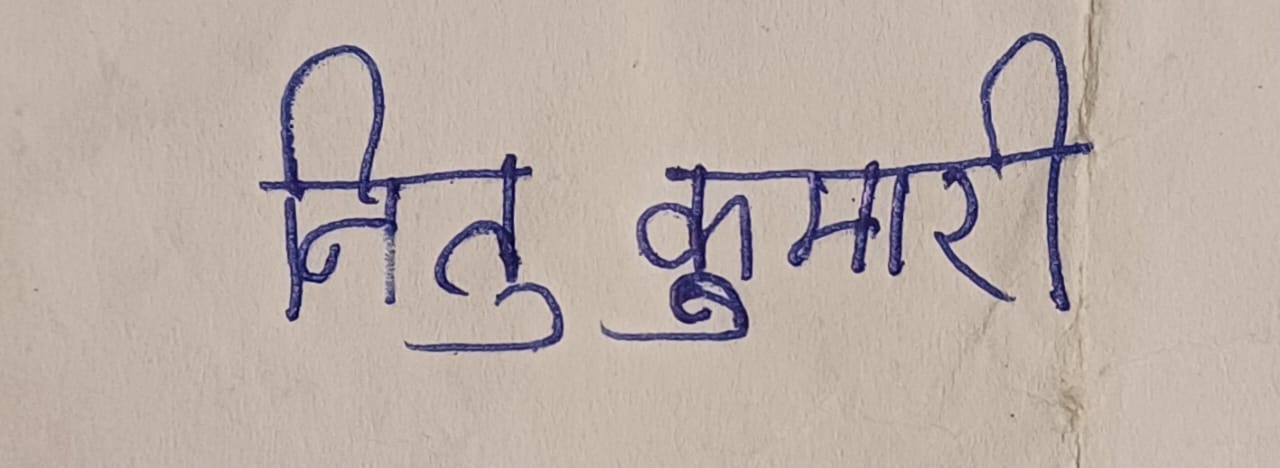 नितु कुमारी